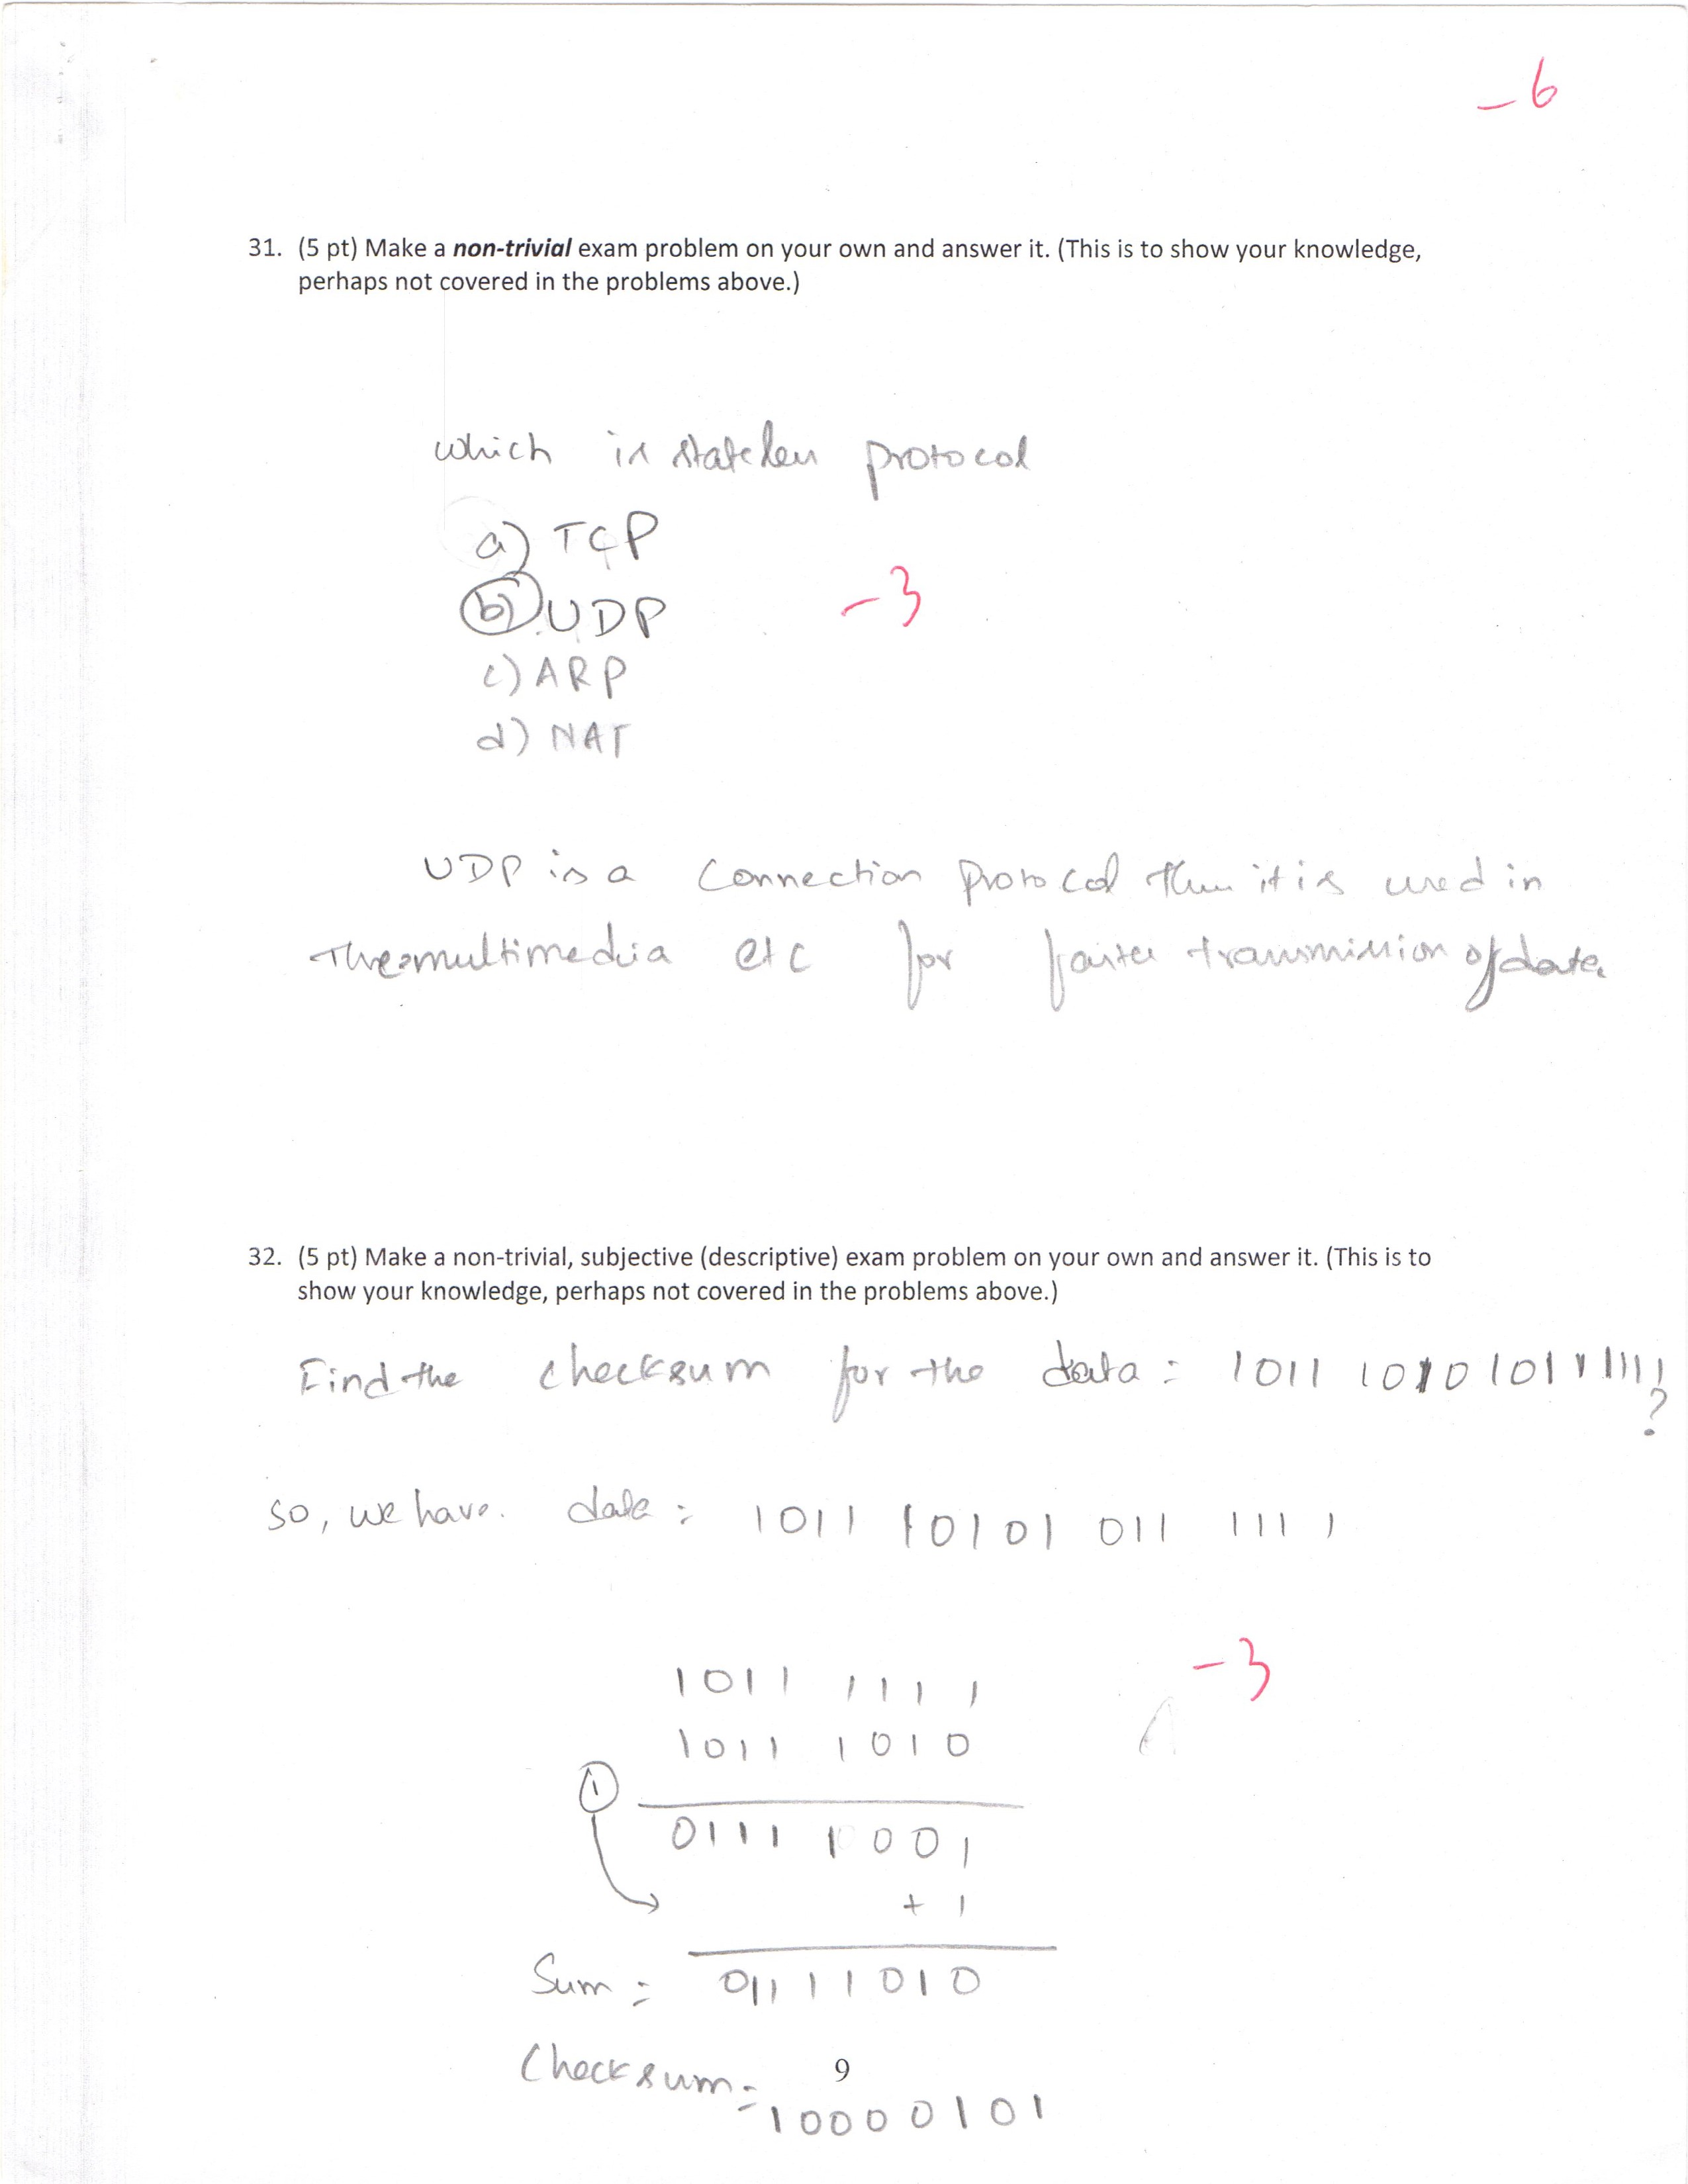 -6
31. (5 pt) Make a non-trivial exam problem on your own and answer it. (This is to show your knowledge,
perhaps not covered in the problems above.)
which is stateless protocol
a) TCP
b) UDP
-3
c) ARP
d) NAT
UDP is a connection protocol then it is used in
multimedia etc for faster transmission of data.
32. (5 pt) Make a non-trivial, subjective (descriptive) exam problem on your own and answer it. (This is to
show your knowledge, perhaps not covered in the problems above.)
Find the checksum for the data: 1011 1010 1011 1111 ?
so, we have. data: 1011 10101 011 1111
-3
1011 1111
1011 1010
1
0111 1001
+ 1
Sum = 01111010
Checksum =
10000101
9